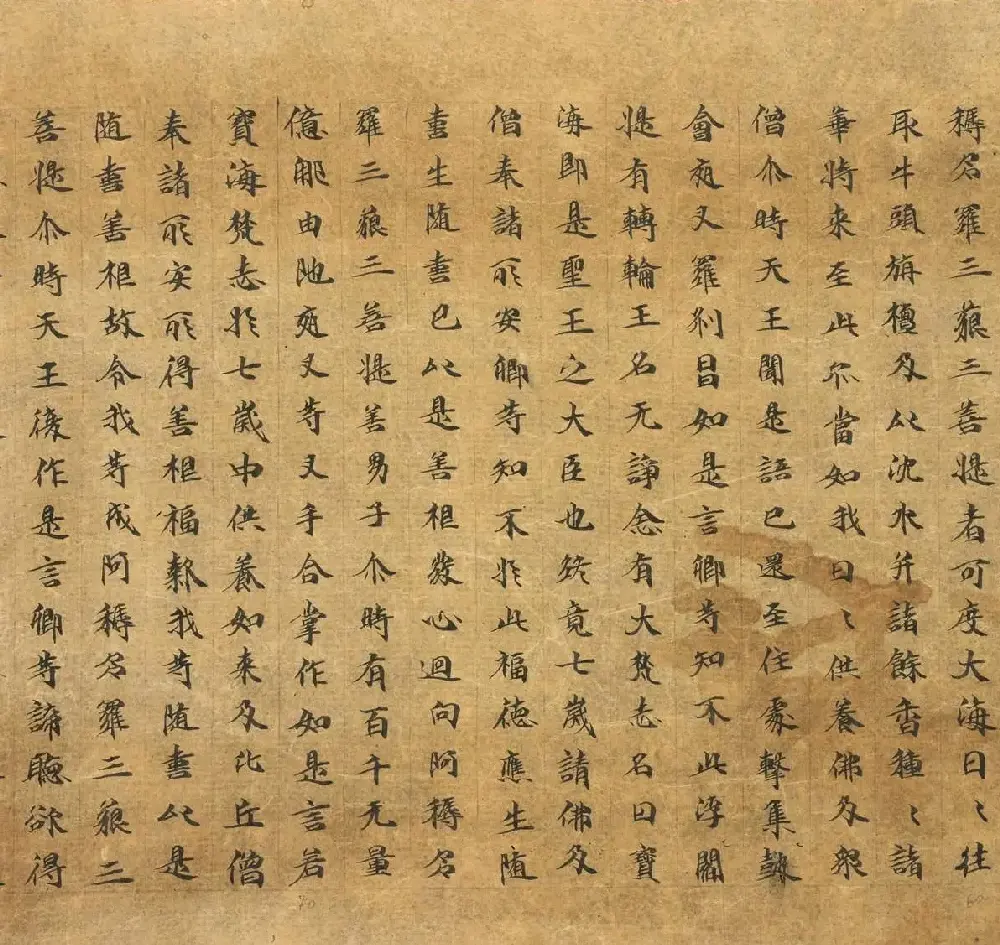 耨多羅三藐三菩提者可度大海日〻往
取牛頭旃檀及以沈水并諸餘香種〻諸
華將來至此亦當如我日〻供養佛及衆
僧尒時天王聞是語已還至住處擊集鼓
會夜叉羅刹昌如是言卿等知不此浮閻
提有轉輪王名无諍念有大梵志名曰寶
海即是聖王之大臣也終竟七歲請佛及
僧奉諸所安卿等知不於此福德應生随
喜生随喜已以是善根發心迴向阿耨多
羅三藐三菩提善男子尒時有百千无量
億那由他夜叉等叉手合掌作如是言若
寶海梵志於七歲中供養如來及比丘僧
奉諸所安所得善根福報我等随喜以是
随喜善根故令我等成阿耨多羅三藐三
菩提尒時天王復作是言卿等諦聽欲得